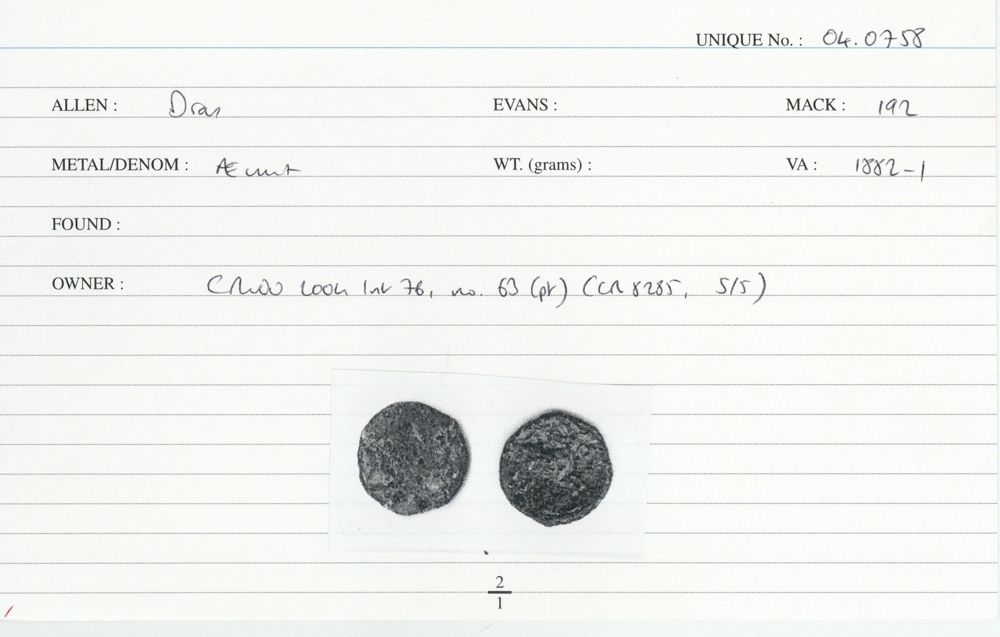 UNIQUE No. : 04.0758
ALLEN : EVANS : MACK : 192
METAL/DENOM : Æ unit WT. (grams) : VA : 1882-1
FOUND :
OWNER : 76, no. 63 (pt) (CR 8285, 5/5)
2
1